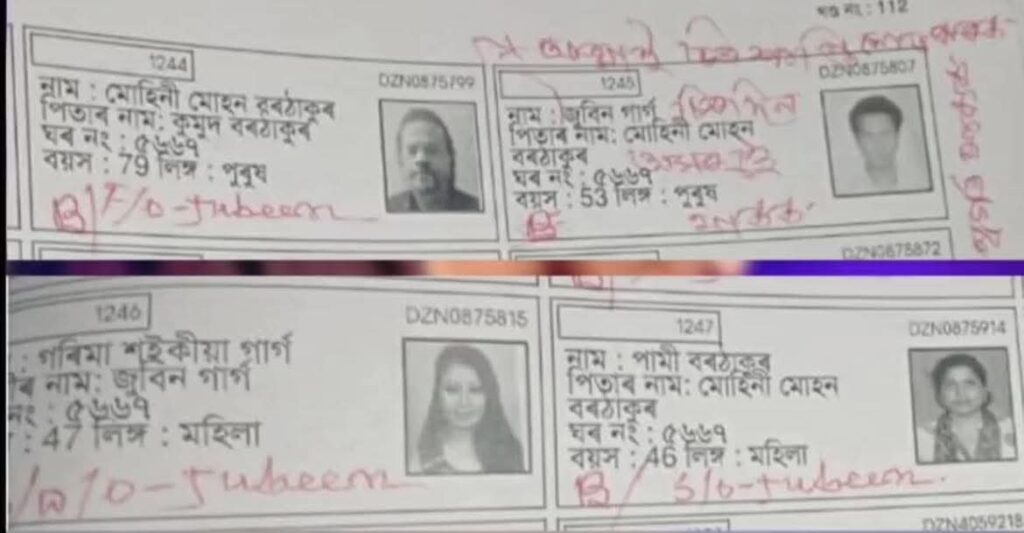 খণ্ড নং : 112
1244
DZN0875799
নাম : মোহিনী মোহন বৰঠাকুৰ
পিতাৰ নাম: কুমুদ বৰঠাকুৰ
ঘৰ নং : ৫৬৬৭
বয়স : 79 লিঙ্গ : পুৰুষ
B/F/o-Jubeen
1245
DZN0875807
নাম : জুবিন গাৰ্গ
পিতাৰ নাম: মোহিনী মোহন
বৰঠাকুৰ
ঘৰ নং : ৫৬৬৭
বয়স : 53 লিঙ্গ : পুৰুষ
B
DZN0875872
1246
DZN0875815
: গৰিমা শইকীয়া গাৰ্গ
ৰ নাম: জুবিন গাৰ্গ
নং : ৫৬৬৭
: 47 লিঙ্গ : মহিলা
/o-Jubeen
1247
DZN0875914
নাম : পামী বৰঠাকুৰ
পিতাৰ নাম: মোহিনী মোহন
বৰঠাকুৰ
ঘৰ নং : ৫৬৬৭
বয়স : 46 লিঙ্গ : মহিলা
B/ S/o-Jubeen.
DZN4059218